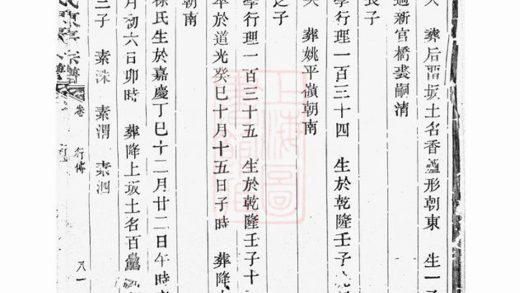 葬后晋坂土名香爐形朝東 生一子
適新官橋裘嗣清
長子
學行理一百三十四 生於乾隆壬子
葬姚平嶺朝南
之子
學行理一百三十五 生於乾隆壬子十
卒於道光癸巳十月十五日子時 葬降上
朝南
徐氏生於嘉慶丁巳十二月廿二日午時
月初六日卯時 葬降上坂土名百
三子 素洙 素渭 素泗
宗譜
卷 行傳
八一
上海圖書館藏